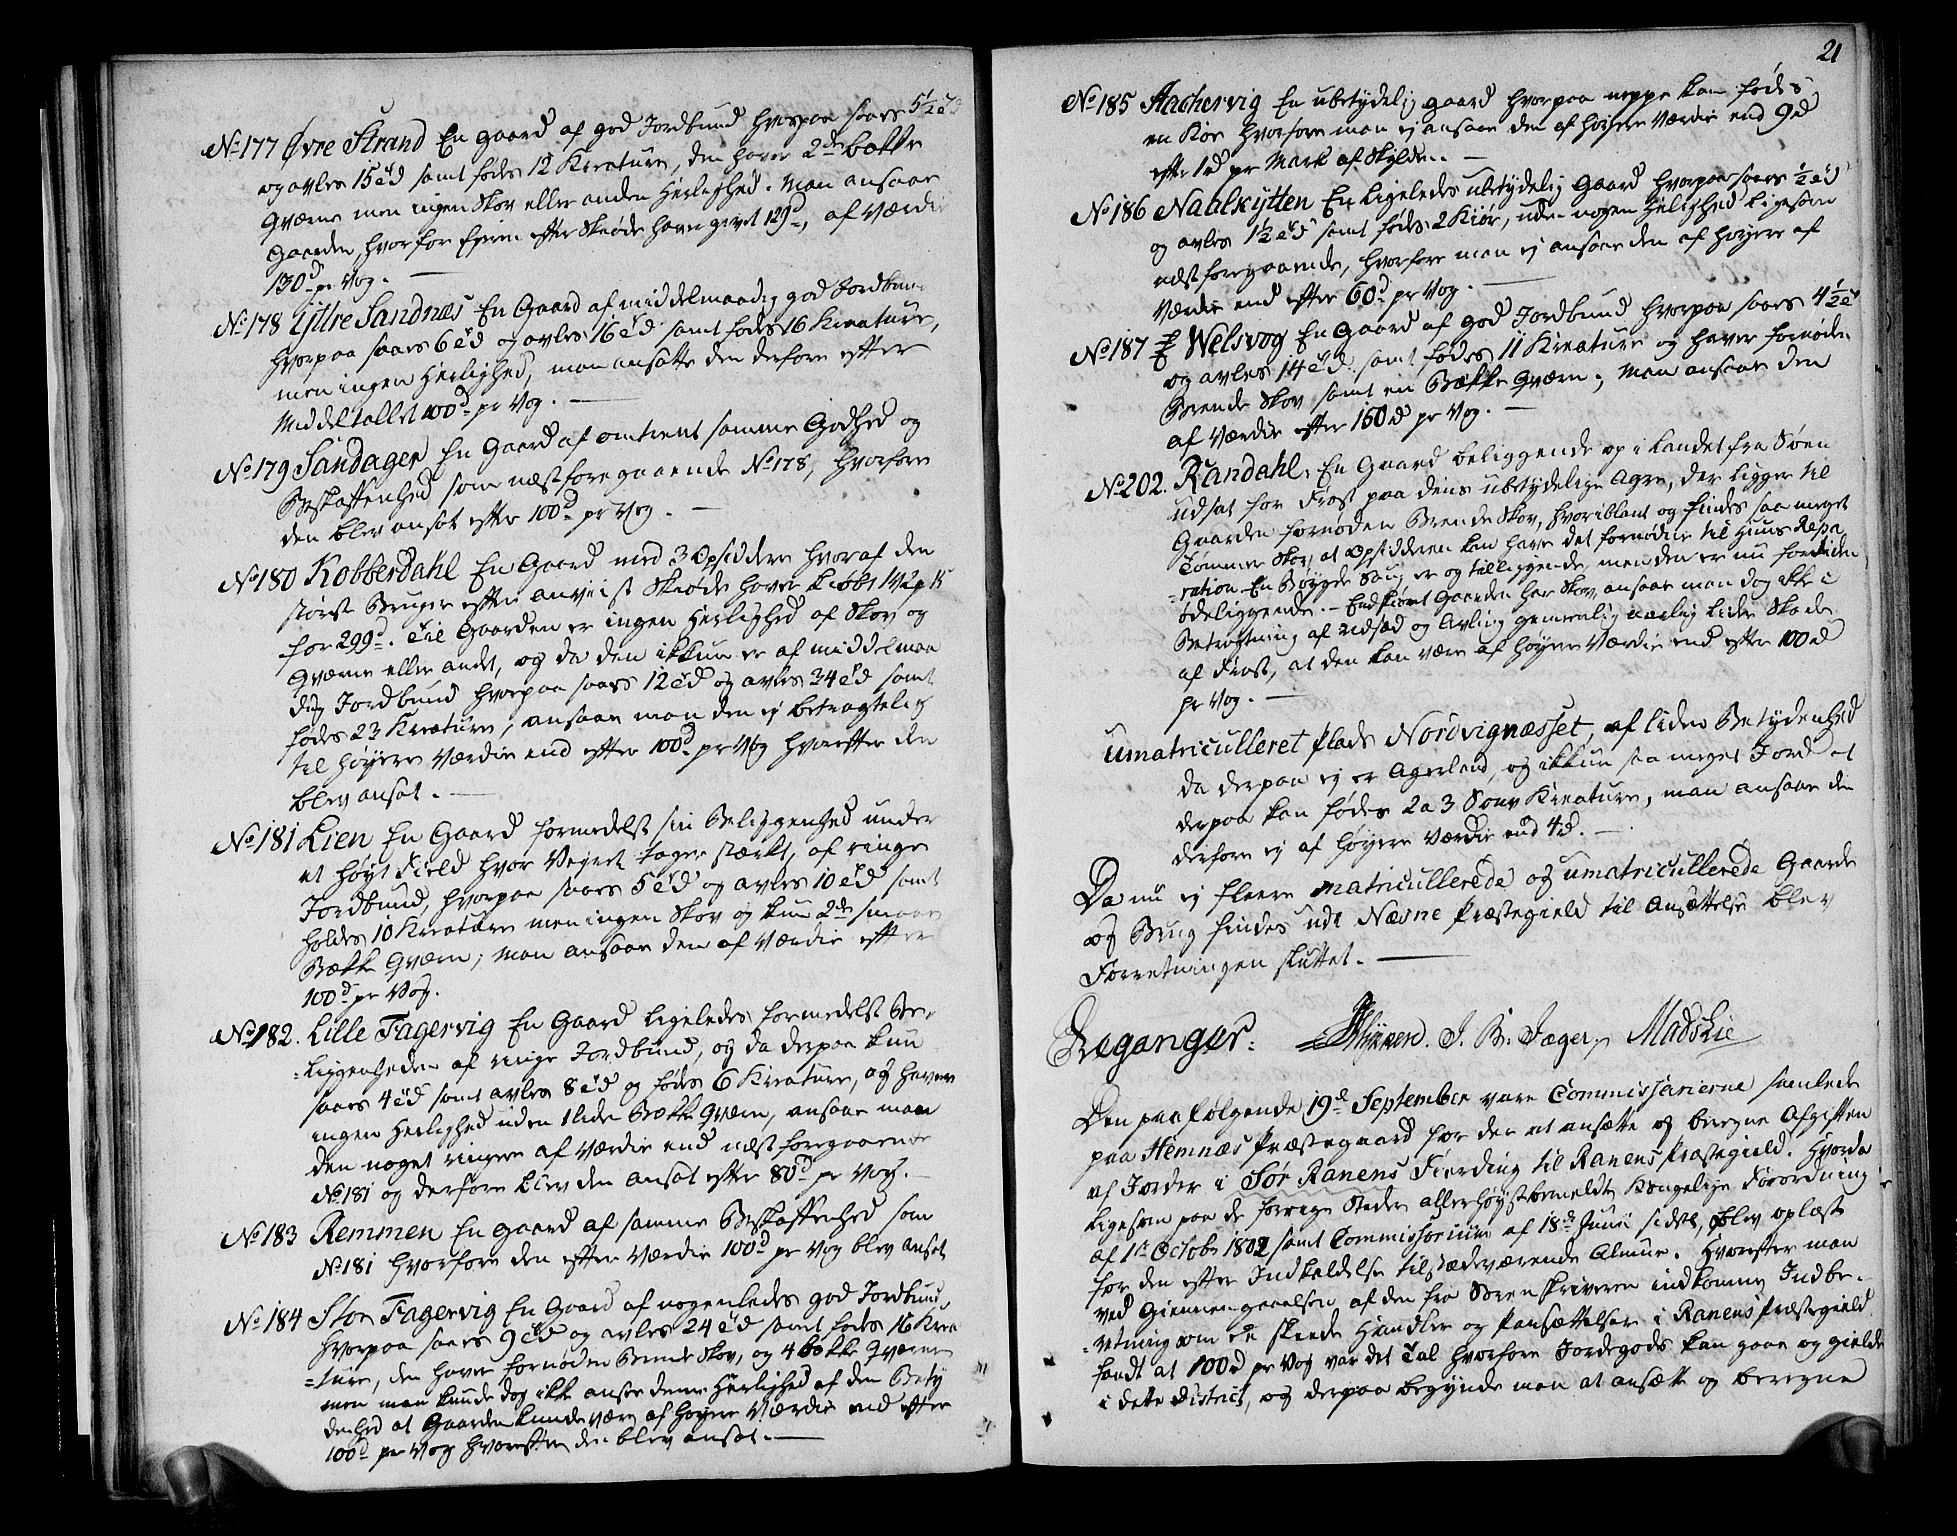 No 177 Øvre Strand En Gaard af god Jordbund hvorpaa saaes 5½
og avles 15 samt fødes 12 Kreature, den haver 2de Bekke
Qværne men ingen Skov eller anden Herlighed. Man ansaae
Gaarden, hvorfor Eyeren efter Skiøde haver givet 129d, af Værdie
130d pr Vog.
No 178 Yttre Sandnæs En Gaard af middelmaadig god Jordbund
hvorpaa saaes 6 og avles 16 samt fødes 16 Kreature,
men ingen Herlighed, man ansatte den derfore efter
Middeltallet 100d pr Vog.
No 179 Sandager En Gaard af omtrent samme Godhed og
Beskaffenhed som næstforegaaende No 178, hvorfore
den blev ansat efter 100d pr Vog.
No 180 Kobberdahl En Gaard med 3 Opsiddere hvoraf den
største Bruger efter anviist Skiøde haver kiøbt 1V 2p 15
for 299d. Til Gaarden er ingen Herlighed af Skov og
Qværne eller andet, og da den ikkun er af middelmaa
dig Jordbund hvorpaa saaes 12 og avles 34 samt
fødes 23 Kreature, ansaae man den ej betragtelig
til høyere Værdie end efter 100d pr Vog hvorefter den
blev ansat.
No 181 Lien En Gaard formedelst sin Beliggenhed under
et høyt Field hvor Veyret tager stærkt, af ringe
Jordbund, hvorpaa saaes 5 og avles 10 samt
holdes 10 Kreature men ingen Skov og kun 2de smaae
Bække Qværn; man ansaae den af Værdie efter
100d pr Vog.
No 182. Lille Fagervig En Gaard ligeledes formedelst Be-
liggenheden af ringe Jordbund, og da derpaa kun
saaes 4 samt avles 8 og fødes 6 Kreature, og haver
ingen Herlighed uden 1 liden Bække Qværn, ansaae man
den noget ringere af Værdie end næstforegaaende
No 181 og derfore blev den ansat efter 80d pr Vog.
No 183 Remmen En Gaard af samme Beskaffenhed som
No 181 hvorfore den efter Værdie 100d pr Vog blev ansat
No 184 Stor Fagervig En Gaard af nogenledes god Jordbund
hvorpaa saaes 9 og avles 24 samt fødes 16 Krea
-ture, den haver fornøden Brende Skov, og 4 bække Qværne
men man kunde dog ikke ansee denne Herlighed af den Bety
denhed at Gaarden kunde være af høyere Værdie end efter
100d pr Vog hvorefter den blev ansat.
21
No 185 Aachervig En ubetydelig Gaard hvorpaa neppe kan fødes
en Koe hvorfore man ej ansaae den af høyere Værdie end 9d
efter 1d pr Mark af Skylden.
No 186 Naalsytten En ligeledes ubetydelig Gaard hvorpaa saaes ½
og avles 1½ samt fødes 2 Kiør, uden nogen Herlighed ligesom
næstforegaaende, hvorfore man ej ansaae den af høyere
Værdie end efter 60d pr Vog.
No 187 Welsvog En Gaard af god Jordbund hvorpaa saaes 4½
og avles 14 samt fødes 11 Kreature og haver fornøden
Brende Skov samt en Bække Qværn; Man ansaae den
af Værdie efter 160d pr Vog.
No 202. Randahl, En Gaard beliggende op i Landet fra Søen
udsat for Frost paa dens ubetydelige Agre, der ligger til
Gaarden fornøden Brende Skov, hvoriblant og findes saa meget
Tømmer Skov, at Opsidderen kan have det fornødne til Huus Repa
-ration En Bøygde Saug er og tilliggende, men den er nu for tiden
ødeliggende. Endskiønt Gaarden har Skov, ansaae man dog ikke i
Betragtning af Udsæd og Avling gemeenlig aarlig lider Skade
af Frost, at den kan være af høyere Værdie end efter 100d
pr Vog.
umatriculleret Plads Nordvignæsset, af liden Betydenhed
da derpaa ej er Agerland, og ikkun saa meget Jord at
derpaa kan fødes 2 a 3 Kreature, man ansaae den
derfore ej af høyere Værdie end 4d.
Da nu ej fleere matricullerede og umatricullerede Gaarde
og Brug findes udi Næsne Præstegield til Ansættelse blev
Forretningen sluttet.
J. B. Jæger, Mads Lie
Den paafølgende 19de September vare Commissairerne samlede
paa Hemnæs Præstegaard for der at ansætte og beregne Afgiften
af Jorder i Sør Ranens Fierding til Ranens Præstegield. Hvorda
ligesom paa de forrige Steder allerhøystbemeldte Kongelige Forordning
af 1te Octobr 1802 samt Commissorium af 18de Junii sidst, blev oplæst
for den efter Indkaldelse tilstædeværende Almue. Hvorefter man
ved Giennemgaaelsen af den fra Sorenskriveren indkomne Indbe-
-retning om de skeede Handler og Pansættelser i Ranens Præstegield
fandt at 100d pr Vog var det Tal hvorfore Jordegods kan gaae og gielde
i dette District, og derpaa begynde man at ansætte og beregne